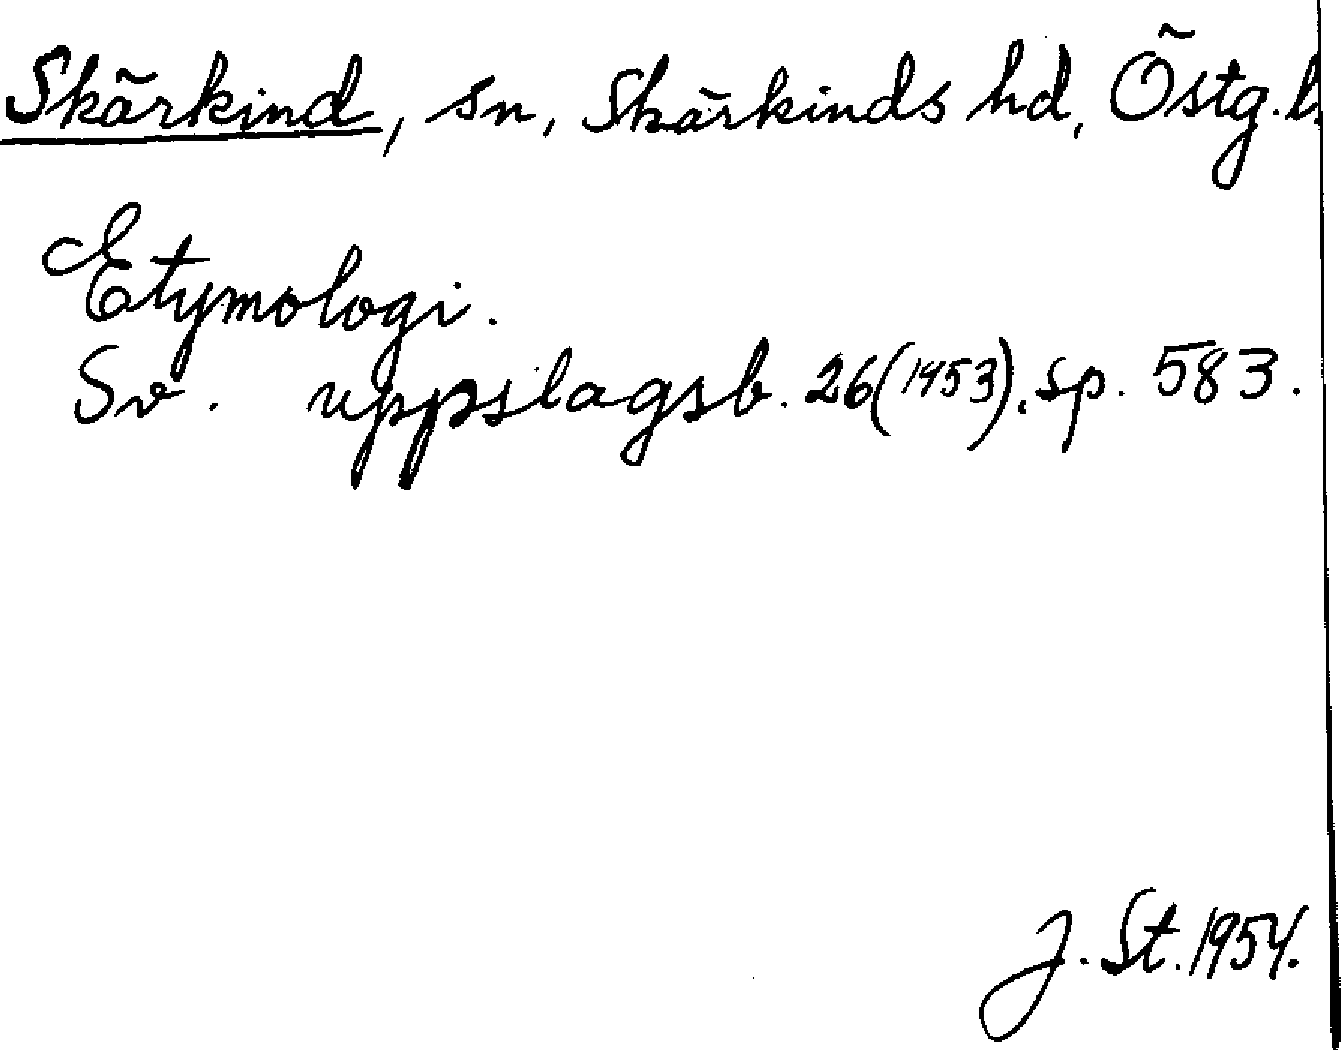 Skärkind, sn, Skärkinds hd, Östg. l.
Etymologi.
Sv. uppslagsb. 26 (1953), sp. 583.
J. St. 1954.